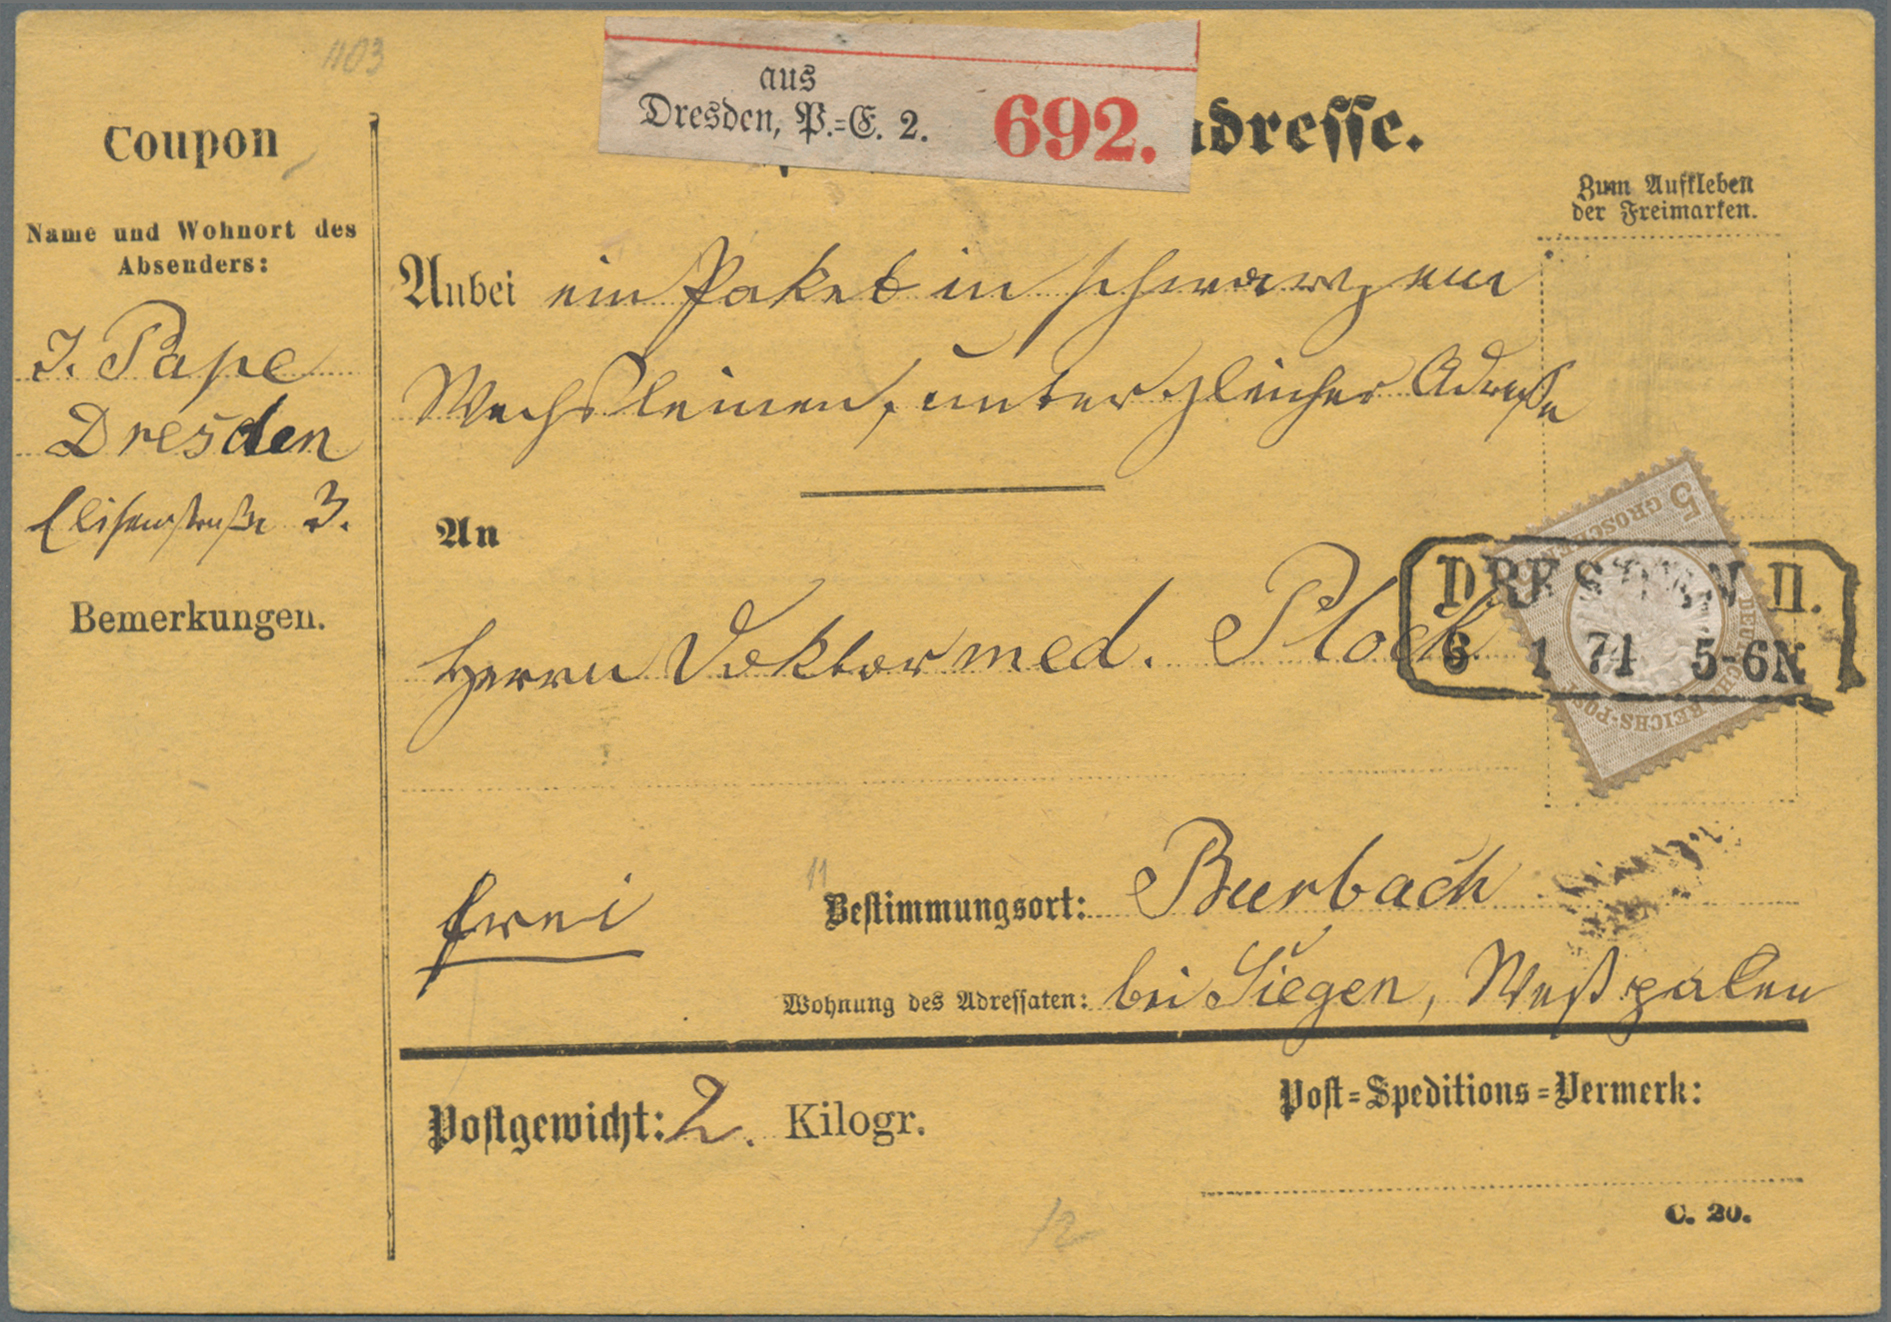 1103
aus
Dresden, P.-E. 2. 692.
adresse.
Coupon
Name und Wohnort des
Absenders:
J. Pape
Dresden
Elisenstraße 3.
Bemerkungen.
Zum Aufkleben
der Freimarken.
Anbei ein Paket in schwarzem
Wachsleinen, unter gleicher Adresse
An
Herrn Doktor med. Plock
5 GROSCHEN
DEUTSCHE REICHS-POST
DRESDEN II.
6 1 74 5-6N
frei
11
Bestimmungsort: Burbach
Wohnung des Adressaten: bei Siegen, Westpalen
Postgewicht: 2. Kilogr.
Post-Speditions-Vermerk:
12
C. 20.